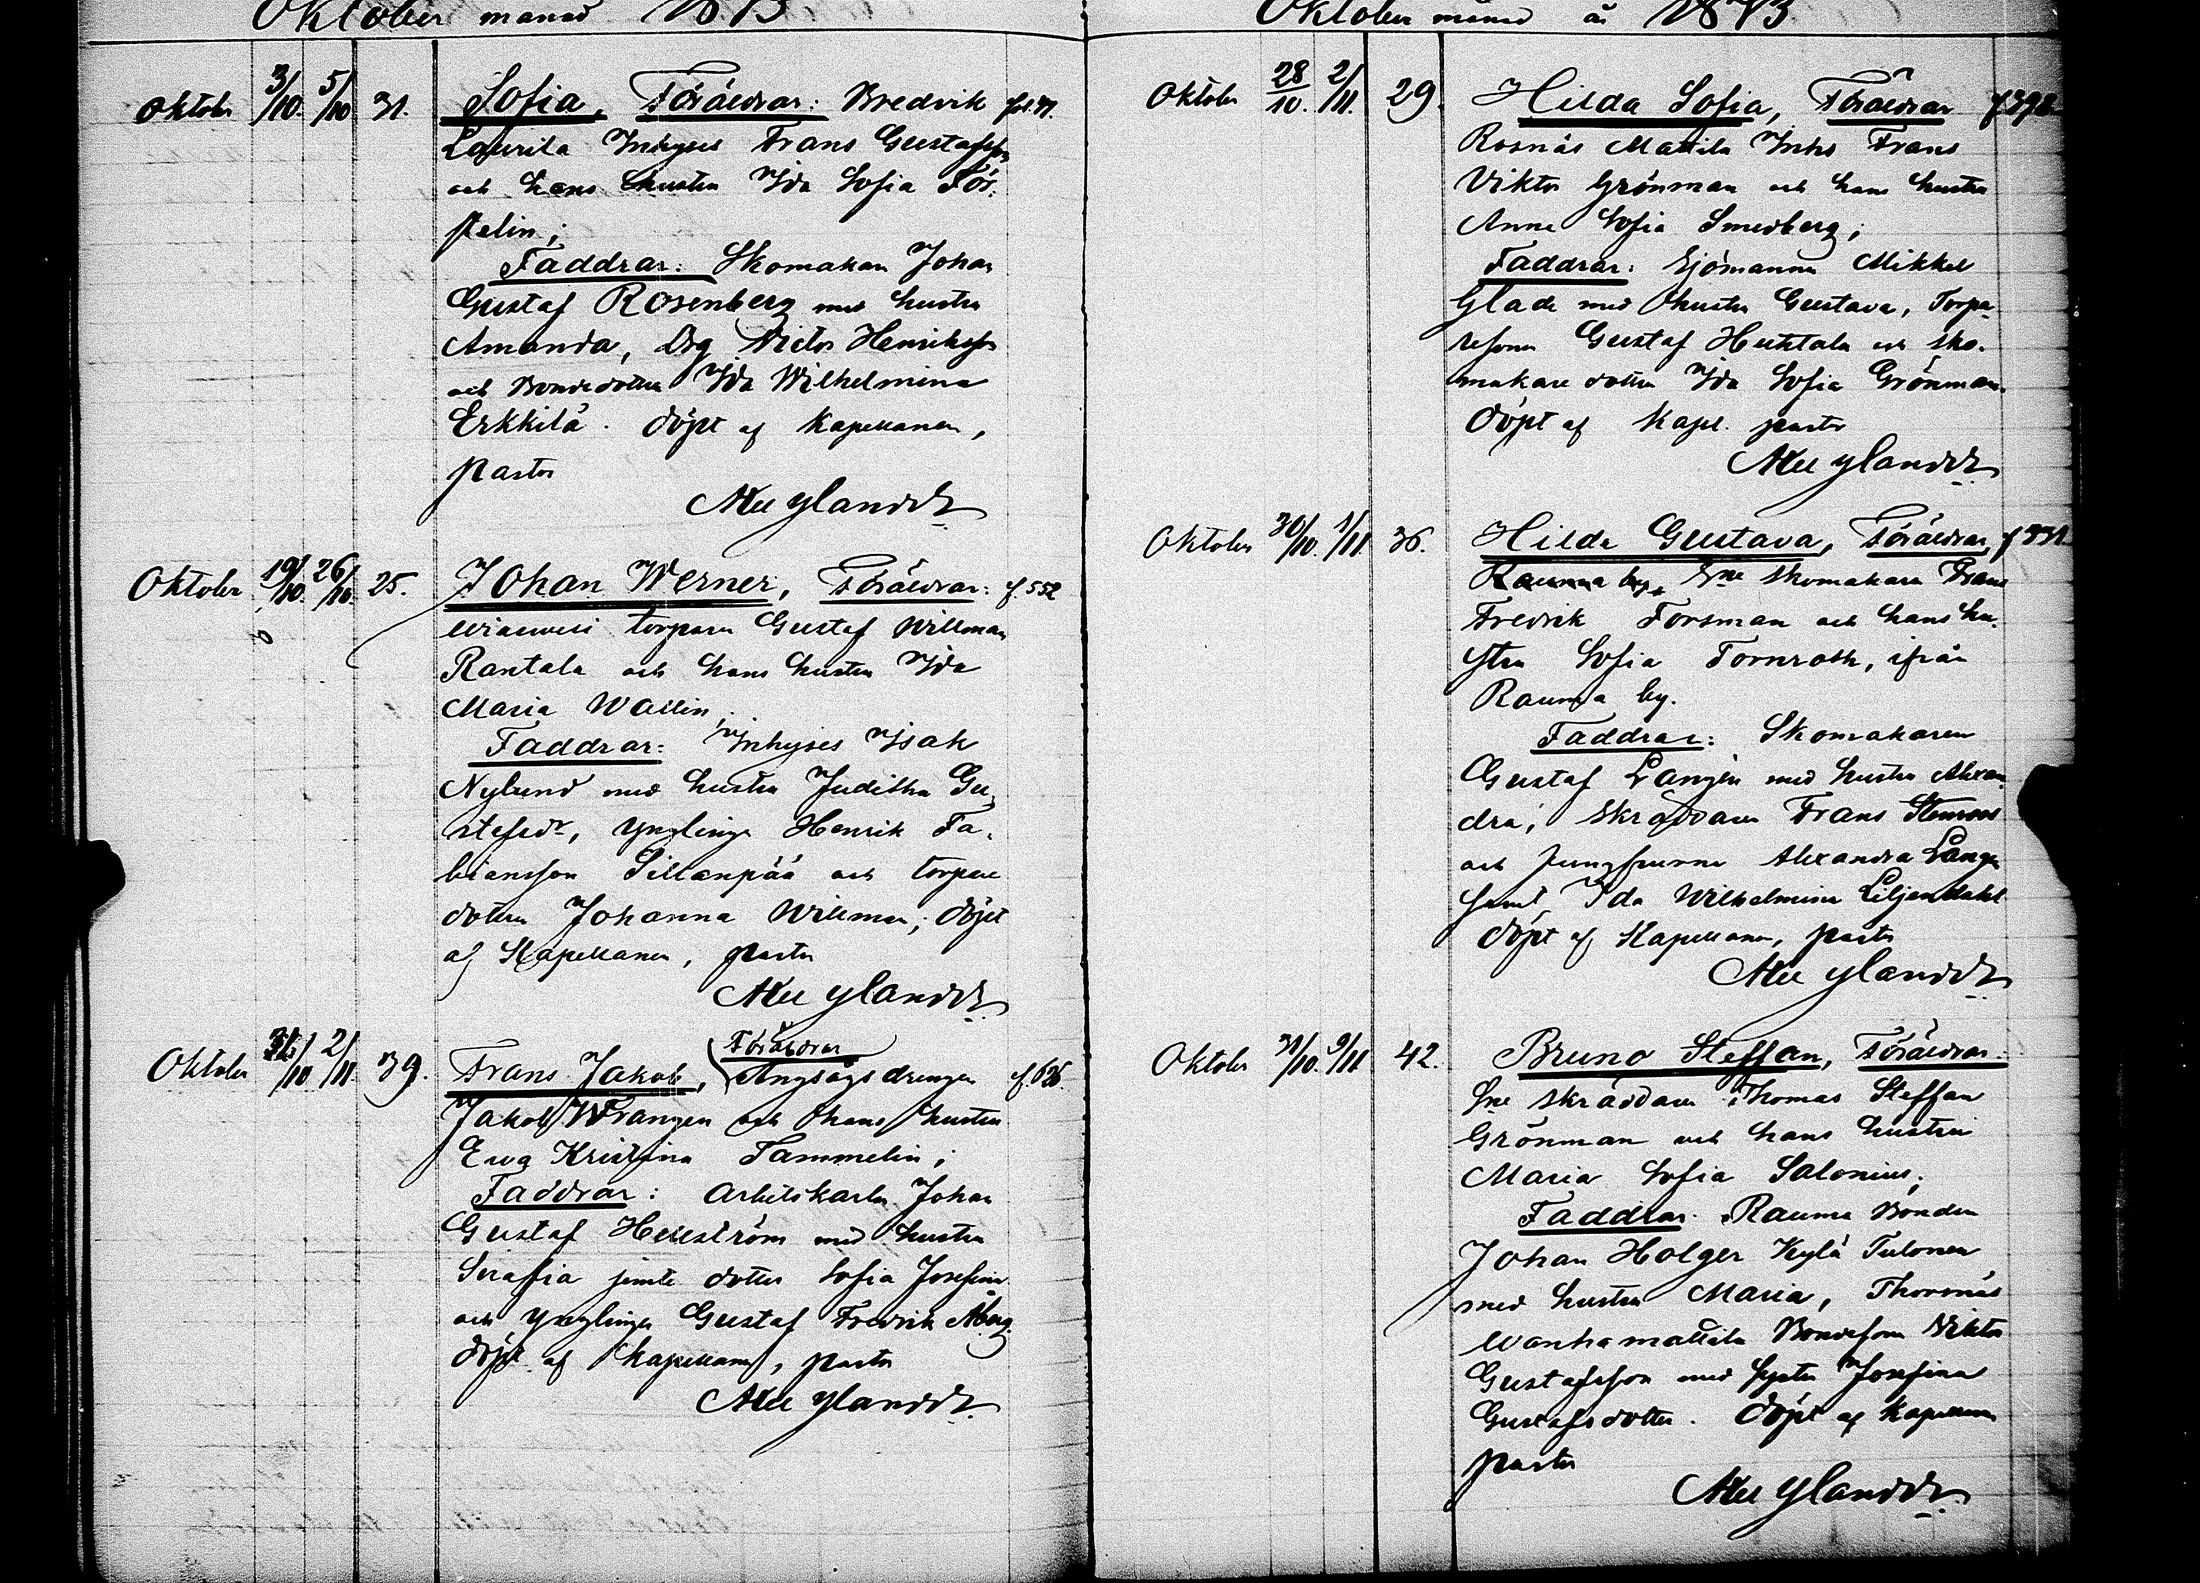 Oktober månad 1873
Oktober 3/10. 5/10 31. Sofia, Föräldrar: Bredvik
Laurila Inhyses Frans Gustafsson
och hans hustru Ida Sofia För-
pelin;
Faddrar: Skomakare Johan
Gustaf Rosenberg med hustru
Amanda, Drg Victor Henriksson
och Bondedottern Ida Wilhelmina
Erkkilä. döpt af Kapellanen,
pastor
Oktober 19/10. 26/10. 25. Johan Werner, Föräldrar: f. 552
torparen Gustaf Willman
Rantala och hans hustru Ida
Maria Wallin,
Faddrar: Inhyses Isak
Nylund med hustru Juditha Gu-
stafsdr, Ynglinge Henrik Fa-
biansson Sillanpää och torpare
dottern Johanna Willman; döpt
af Kapellanen, pastor
Oktober 2/11. 39. Frans Jakob, Föräldrar
Ångsågs drengen
Jakob Wrangen och hans hustru
Ewa Kristina Tammelin;
Faddrar: Arbetskarlen Johan
Gustaf Hellström med hustru
Serafia jemte dotter Sofia Josefina
och Ynglinge Gustaf Fredrik Åberg.
döpt af Kapellanen, pastor
Oktober månad år 1873
Oktober 28/10. 2/11. 29. Hilda Sofia, Föräldrar
Rosnäs Mattila Inhs Frans
Viktor Grönman och hans hustru
Anna Sofia Smedberg;
Faddrar: Sjömannen Mikkel
Glade med hustru Gustava, Torpa-
resonen Gustaf Huhtala och sko-
makare dottern Ida Sofia Grönman.
döpt af Kapl. pastor
Oktober 30/10. 1/11. 36. Hilda Gustava, Föräldrar,
Rauma by, Sne skomakare Frans
Fredrik Forsman och hans hu-
stru Sofia Tornroth, ifrån
Rauma by.
Faddrar: Skomakaren
Gustaf Langén med hustru Alexan-
dra, Skräddaren Frans Stenroos
och Jungfrurna Alexandra Langen
samt Ida Wilhelmina Liljendahl
döpt af Kapellanen, pastor
Oktober 31/10. 9/11 42. Bruno Steffan, Föräldrar:
Sne skräddaren Thomas Steffan
Grönman och hans hustru
Maria Sofia Salonius;
Faddrar. Rauma Bonden
Johan Holger Kylä Tulonen
med hustru Maria, Thornäs
Wanhamattila Bondeson Viktor
Gustafsson med syster Josefina
Gustafsdotter. döpt af Kapellanen
pastor